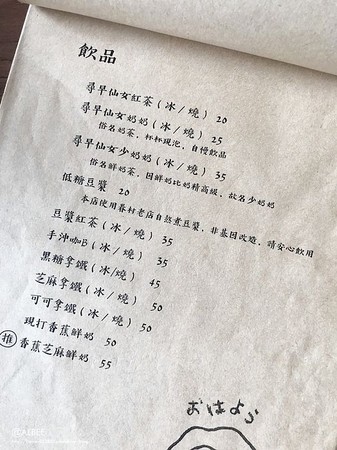 飲品
尋早仙女紅茶(冰/燒) 20
尋早仙女奶奶(冰/燒) 25
俗名奶茶，杯杯現泡，自慢飲品
尋早仙女少奶奶(冰/燒) 35
俗名鮮奶茶，因鮮奶比奶精高級，故名少奶奶
低糖豆漿 20
本店使用眷村老店自然煮豆漿，非基因改造，請安心飲用
豆漿紅茶(冰/燒) 35
手沖咖B(冰/燒) 35
黑糖拿鐵(冰/燒) 45
芝麻拿鐵(冰/燒) 50
可可拿鐵(冰/燒) 50
現打香蕉鮮奶 50
推 香蕉芝麻鮮奶 55
おはよう